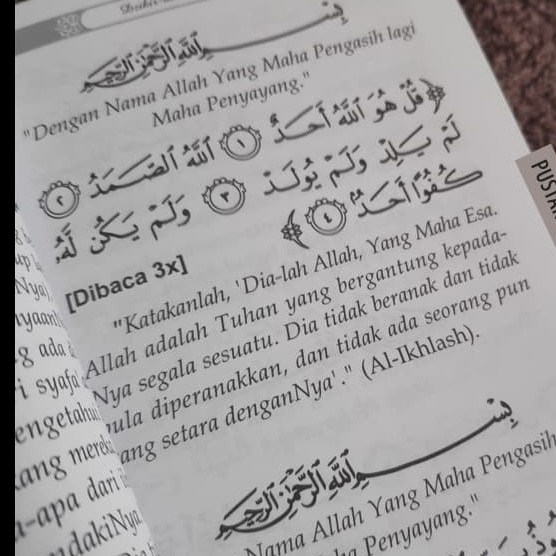 بِسْمِ اللَّهِ الرَّحْمَنِ الرَّحِيمِ
"Dengan Nama Allah Yang Maha Pengasih lagi
Maha Penyayang."
﴿ قُلْ هُوَ اللَّهُ أَحَدٌ ١ اللَّهُ الصَّمَدُ ٢
لَمْ يَلِدْ وَلَمْ يُولَدْ ٣ وَلَمْ يَكُن لَّهُ
كُفُوًا أَحَدٌ ٤ ﴾
[Dibaca 3x]
"Katakanlah, 'Dia-lah Allah, Yang Maha Esa.
Allah adalah Tuhan yang bergantung kepada-
Nya segala sesuatu. Dia tidak beranak dan tidak
pula diperanakkan, dan tidak ada seorang pun
yang setara denganNya'." (Al-Ikhlash).
بِسْمِ اللَّهِ الرَّحْمَنِ الرَّحِيمِ
Nama Allah Yang Maha Pengasih
Penyayang."
g ada
i syafa'
engetahui
ang mereka
a-apa dari
ndakiNya
PUSTA